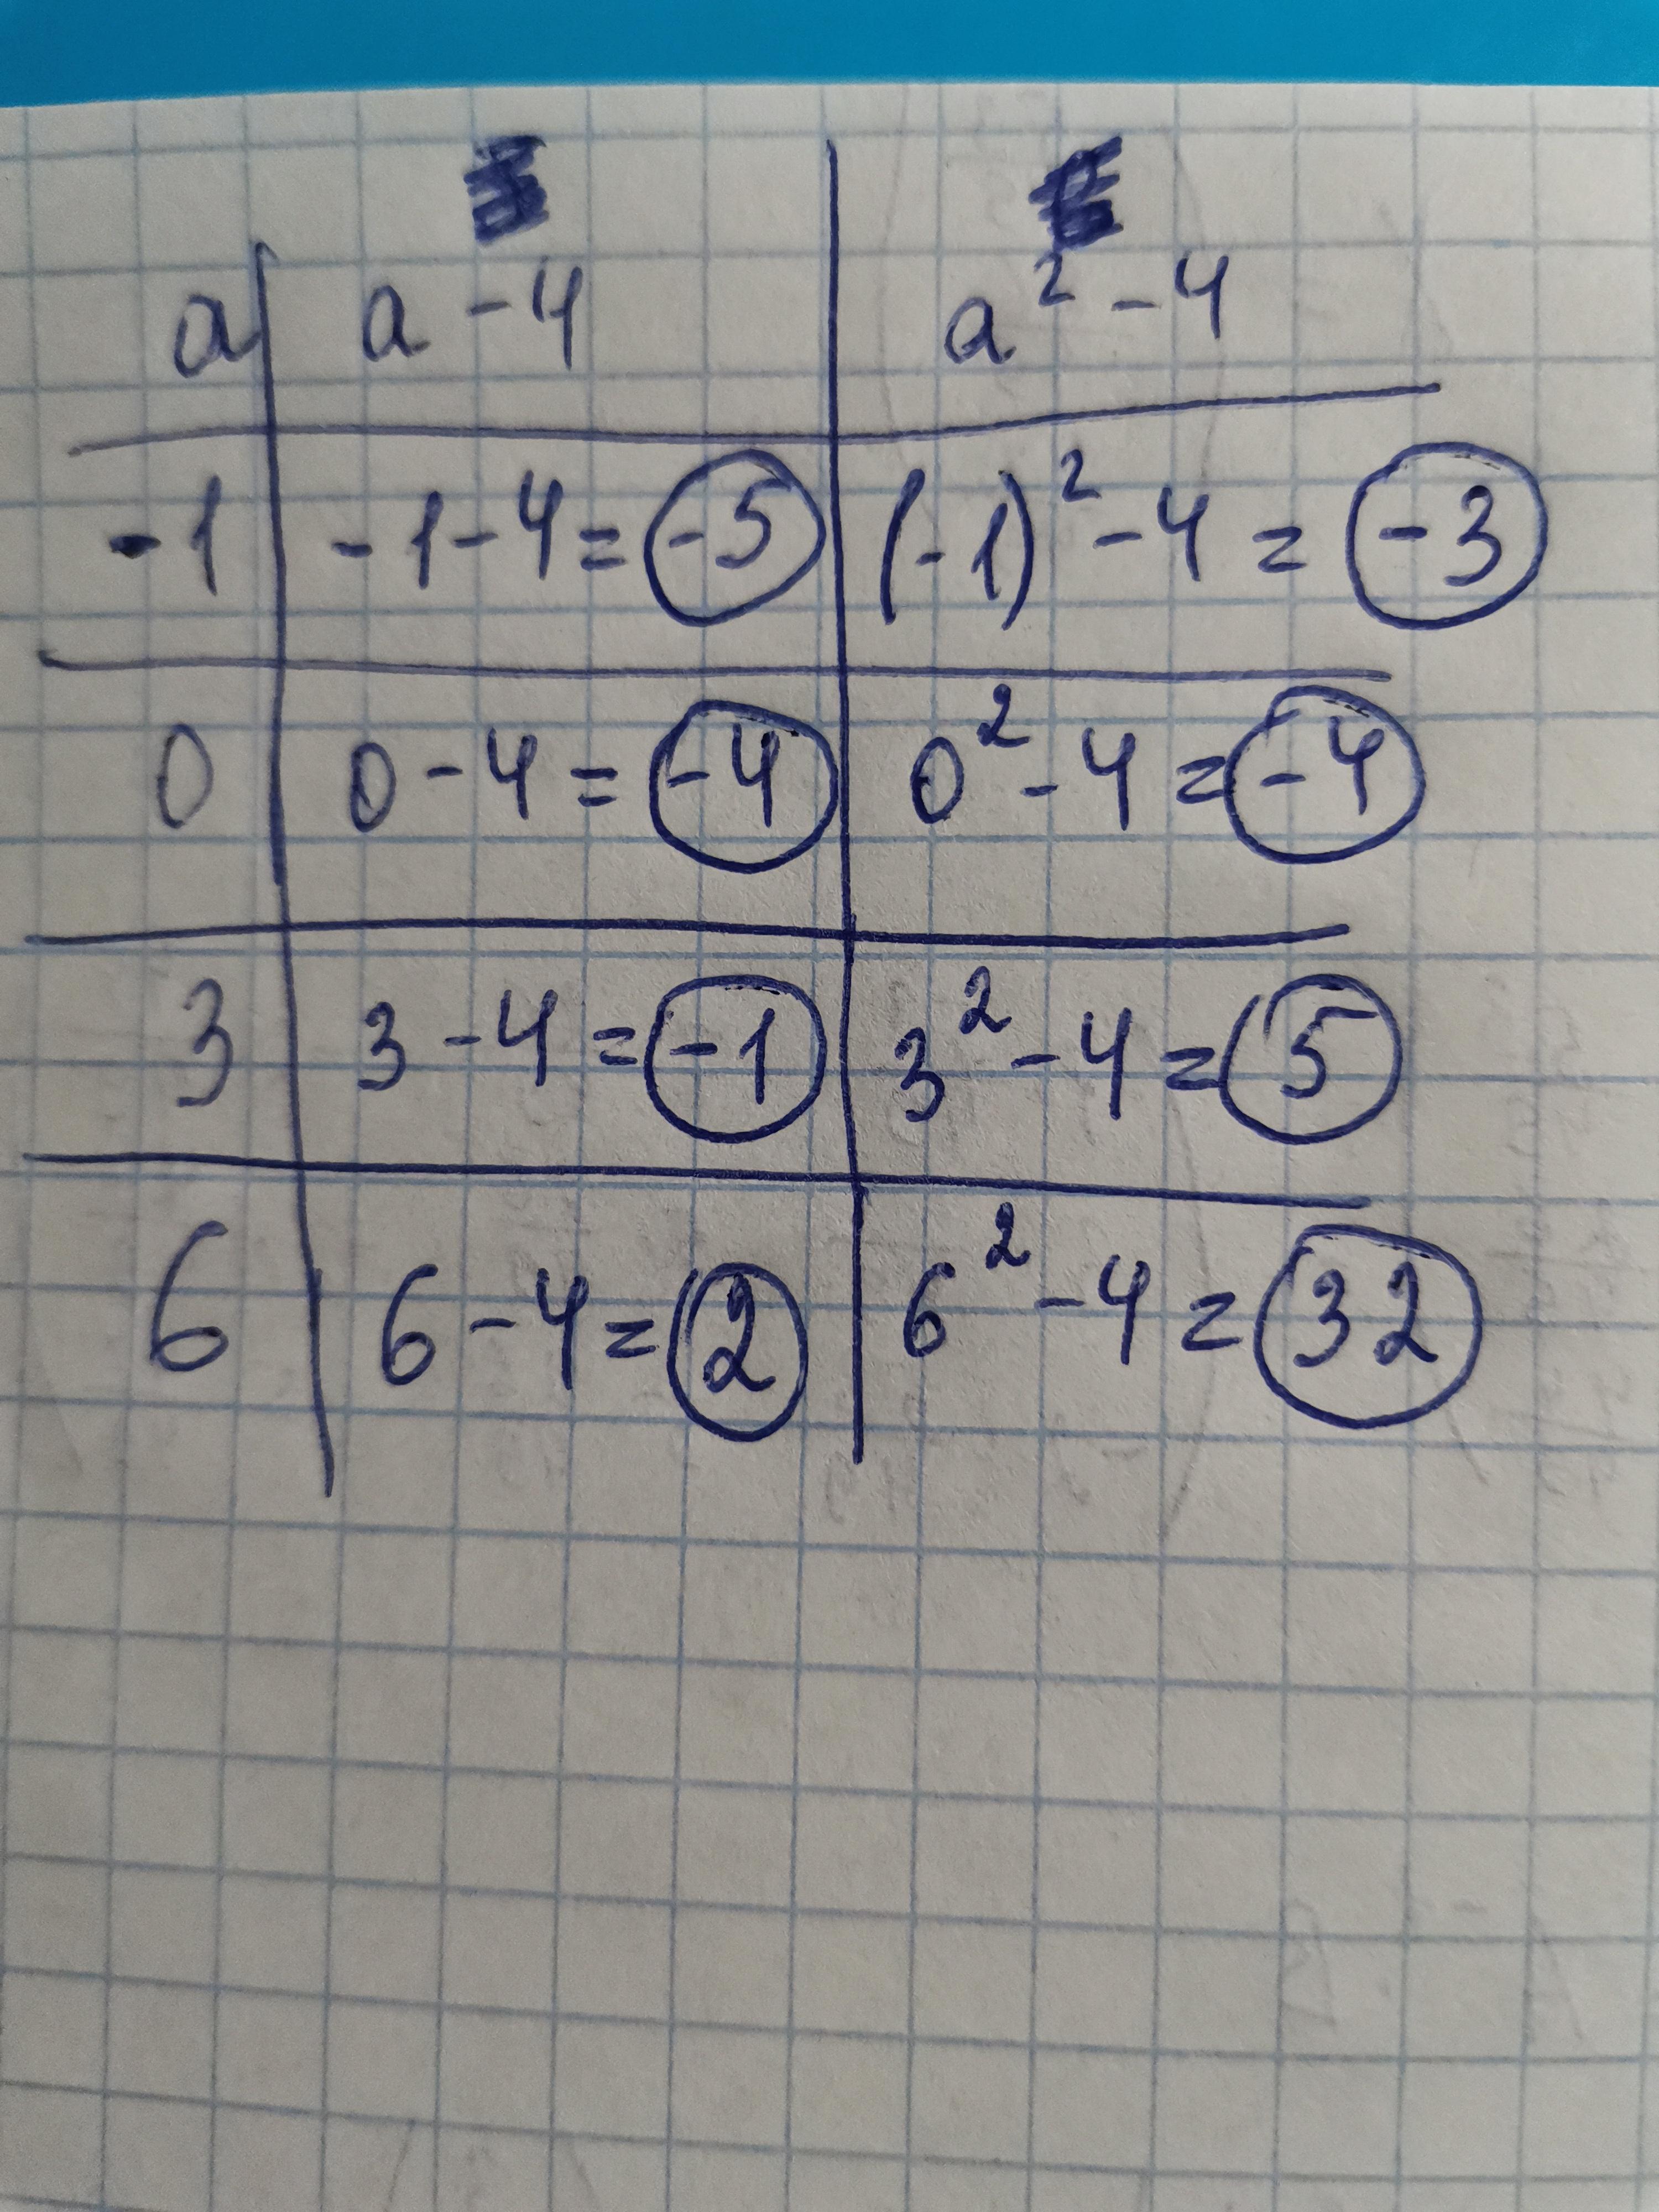 a a - 4 a² - 4
-1 -1-4= -5 (-1)² -4 = -3
0 0-4= -4 0² -4 = -4
3 3-4= -1 3² -4 = 5
6 6-4= 2 6² -4 = 32